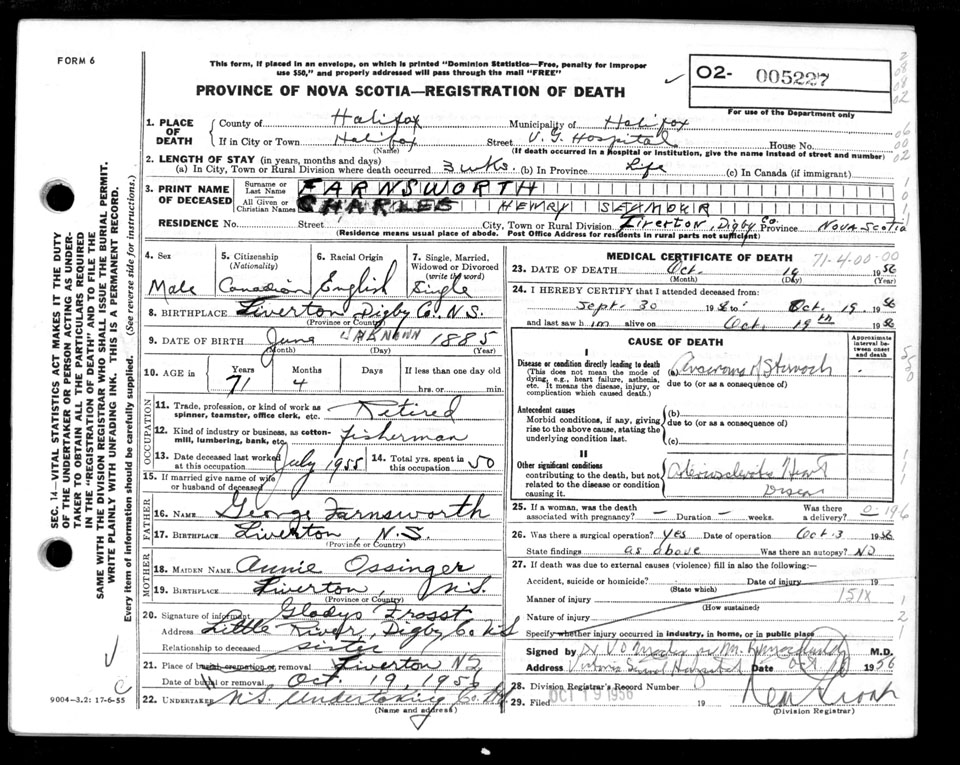 FORM 6
This form, if placed in an envelope, on which is printed "Dominion Statistics—Free, penalty for improper
use $50," and properly addressed will pass through the mail "FREE"
PROVINCE OF NOVA SCOTIA—REGISTRATION OF DEATH
02- 005227
For use of the Department only
1. PLACE OF DEATH
County of Halifax Municipality of Halifax
If in City or Town Halifax Street V.G. Hospital House No.
(Name) (If death occurred in a hospital or institution, give the name instead of street and number)
2. LENGTH OF STAY (in years, months and days)
(a) In City, Town or Rural Division where death occurred 3 wks. (b) In Province Life (c) In Canada (if immigrant)
3. PRINT NAME OF DECEASED
Surname or Last Name FARNSWORTH
All Given or Christian Names CHARLES HENRY SEAMOUR
RESIDENCE No. Street City, Town or Rural Division Tiverton, Digby Co. Province NOVA SCOTIA
(Residence means usual place of abode. Post Office Address for residents in rural parts not sufficient)
4. Sex Male
5. Citizenship (Nationality) Canadian
6. Racial Origin English
7. Single, Married, Widowed or Divorced (write the word) Single
8. BIRTHPLACE Tiverton Digby Co. N.S.
(Province or Country)
9. DATE OF BIRTH June UNKNOWN 1885
(Month) (Day) (Year)
10. AGE in Years 71 Months 4 Days If less than one day old
hrs. or min.
OCCUPATION
11. Trade, profession, or kind of work as spinner, teamster, office clerk, etc. Retired
12. Kind of industry or business, as cotton-mill, lumbering, bank, etc. fisherman
13. Date deceased last worked at this occupation July 1955 14. Total yrs. spent in this occupation 50
15. If married give name of wife or husband of deceased
FATHER
16. NAME George Farnsworth
17. BIRTHPLACE Tiverton, N.S.
(Province or Country)
MOTHER
18. MAIDEN NAME Annie Ossinger
19. BIRTHPLACE Tiverton, N.S.
(Province or Country)
20. Signature of informant Gladys Frosst
Address Little River, Digby Co. N.S
Relationship to deceased sister
21. Place of burial, cremation or removal Tiverton NS
Date of burial or removal Oct. 19, 1956
22. UNDERTAKER N.S. Undertaking Co. Ltd
(Name and address)
MEDICAL CERTIFICATE OF DEATH
71-4-00-00-00
23. DATE OF DEATH Oct. 19 1956
(Month) (Day) (Year)
24. I HEREBY CERTIFY that I attended deceased from:
Sept. 30 1956 to: Oct. 19 1956
and last saw him alive on Oct. 19th 1956
CAUSE OF DEATH
Approximate interval between onset and death
I
Disease or condition directly leading to death
(This does not mean the mode of dying, e.g., heart failure, asthenia, etc. It means the disease, injury, or complication which caused death.)
(a) Carcinoma of Stomach
due to (or as a consequence of)
Antecedent causes
Morbid conditions, if any, giving rise to the above cause, stating the underlying condition last.
(b)
due to (or as a consequence of)
(c)
II
Other significant conditions
contributing to the death, but not related to the disease or condition causing it.
Arteriosclerotic Heart
Disease
25. If a woman, was the death associated with pregnancy? — Duration — weeks. Was there a delivery?
26. Was there a surgical operation? yes Date of operation Oct. 3 1956
State findings as above Was there an autopsy? NO
27. If death was due to external causes (violence) fill in also the following:
Accident, suicide or homicide? Date of injury 19
(State which)
Manner of injury 151X
(How sustained)
Nature of injury
Specify whether injury occurred in industry, in home, or in public place
Signed by M.D.
Address Victoria General Hospital Date Oct 19 1956
28. Division Registrar's Record Number
29. Filed OCT 19 1956 19
(Division Registrar)
SEC. 14—VITAL STATISTICS ACT MAKES IT THE DUTY
OF THE UNDERTAKER OR PERSON ACTING AS UNDER-
TAKER TO OBTAIN ALL THE PARTICULARS REQUIRED
IN THE "REGISTRATION OF DEATH" AND TO FILE THE
SAME WITH THE DIVISION REGISTRAR WHO SHALL ISSUE THE BURIAL PERMIT.
WRITE PLAINLY WITH UNFADING INK. THIS IS A PERMANENT RECORD.
Every item of information should be carefully supplied. (See reverse side for instructions.)
9004-3.2: 17-6-55